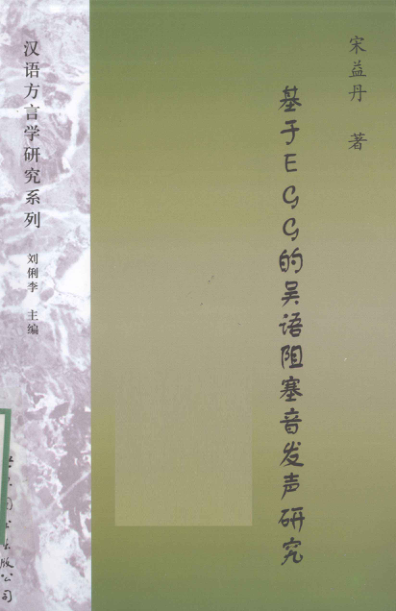 宋益丹 著
基于EGG的吴语阻塞音发声研究
汉语方言学研究系列
刘俐李 主编
出版公司